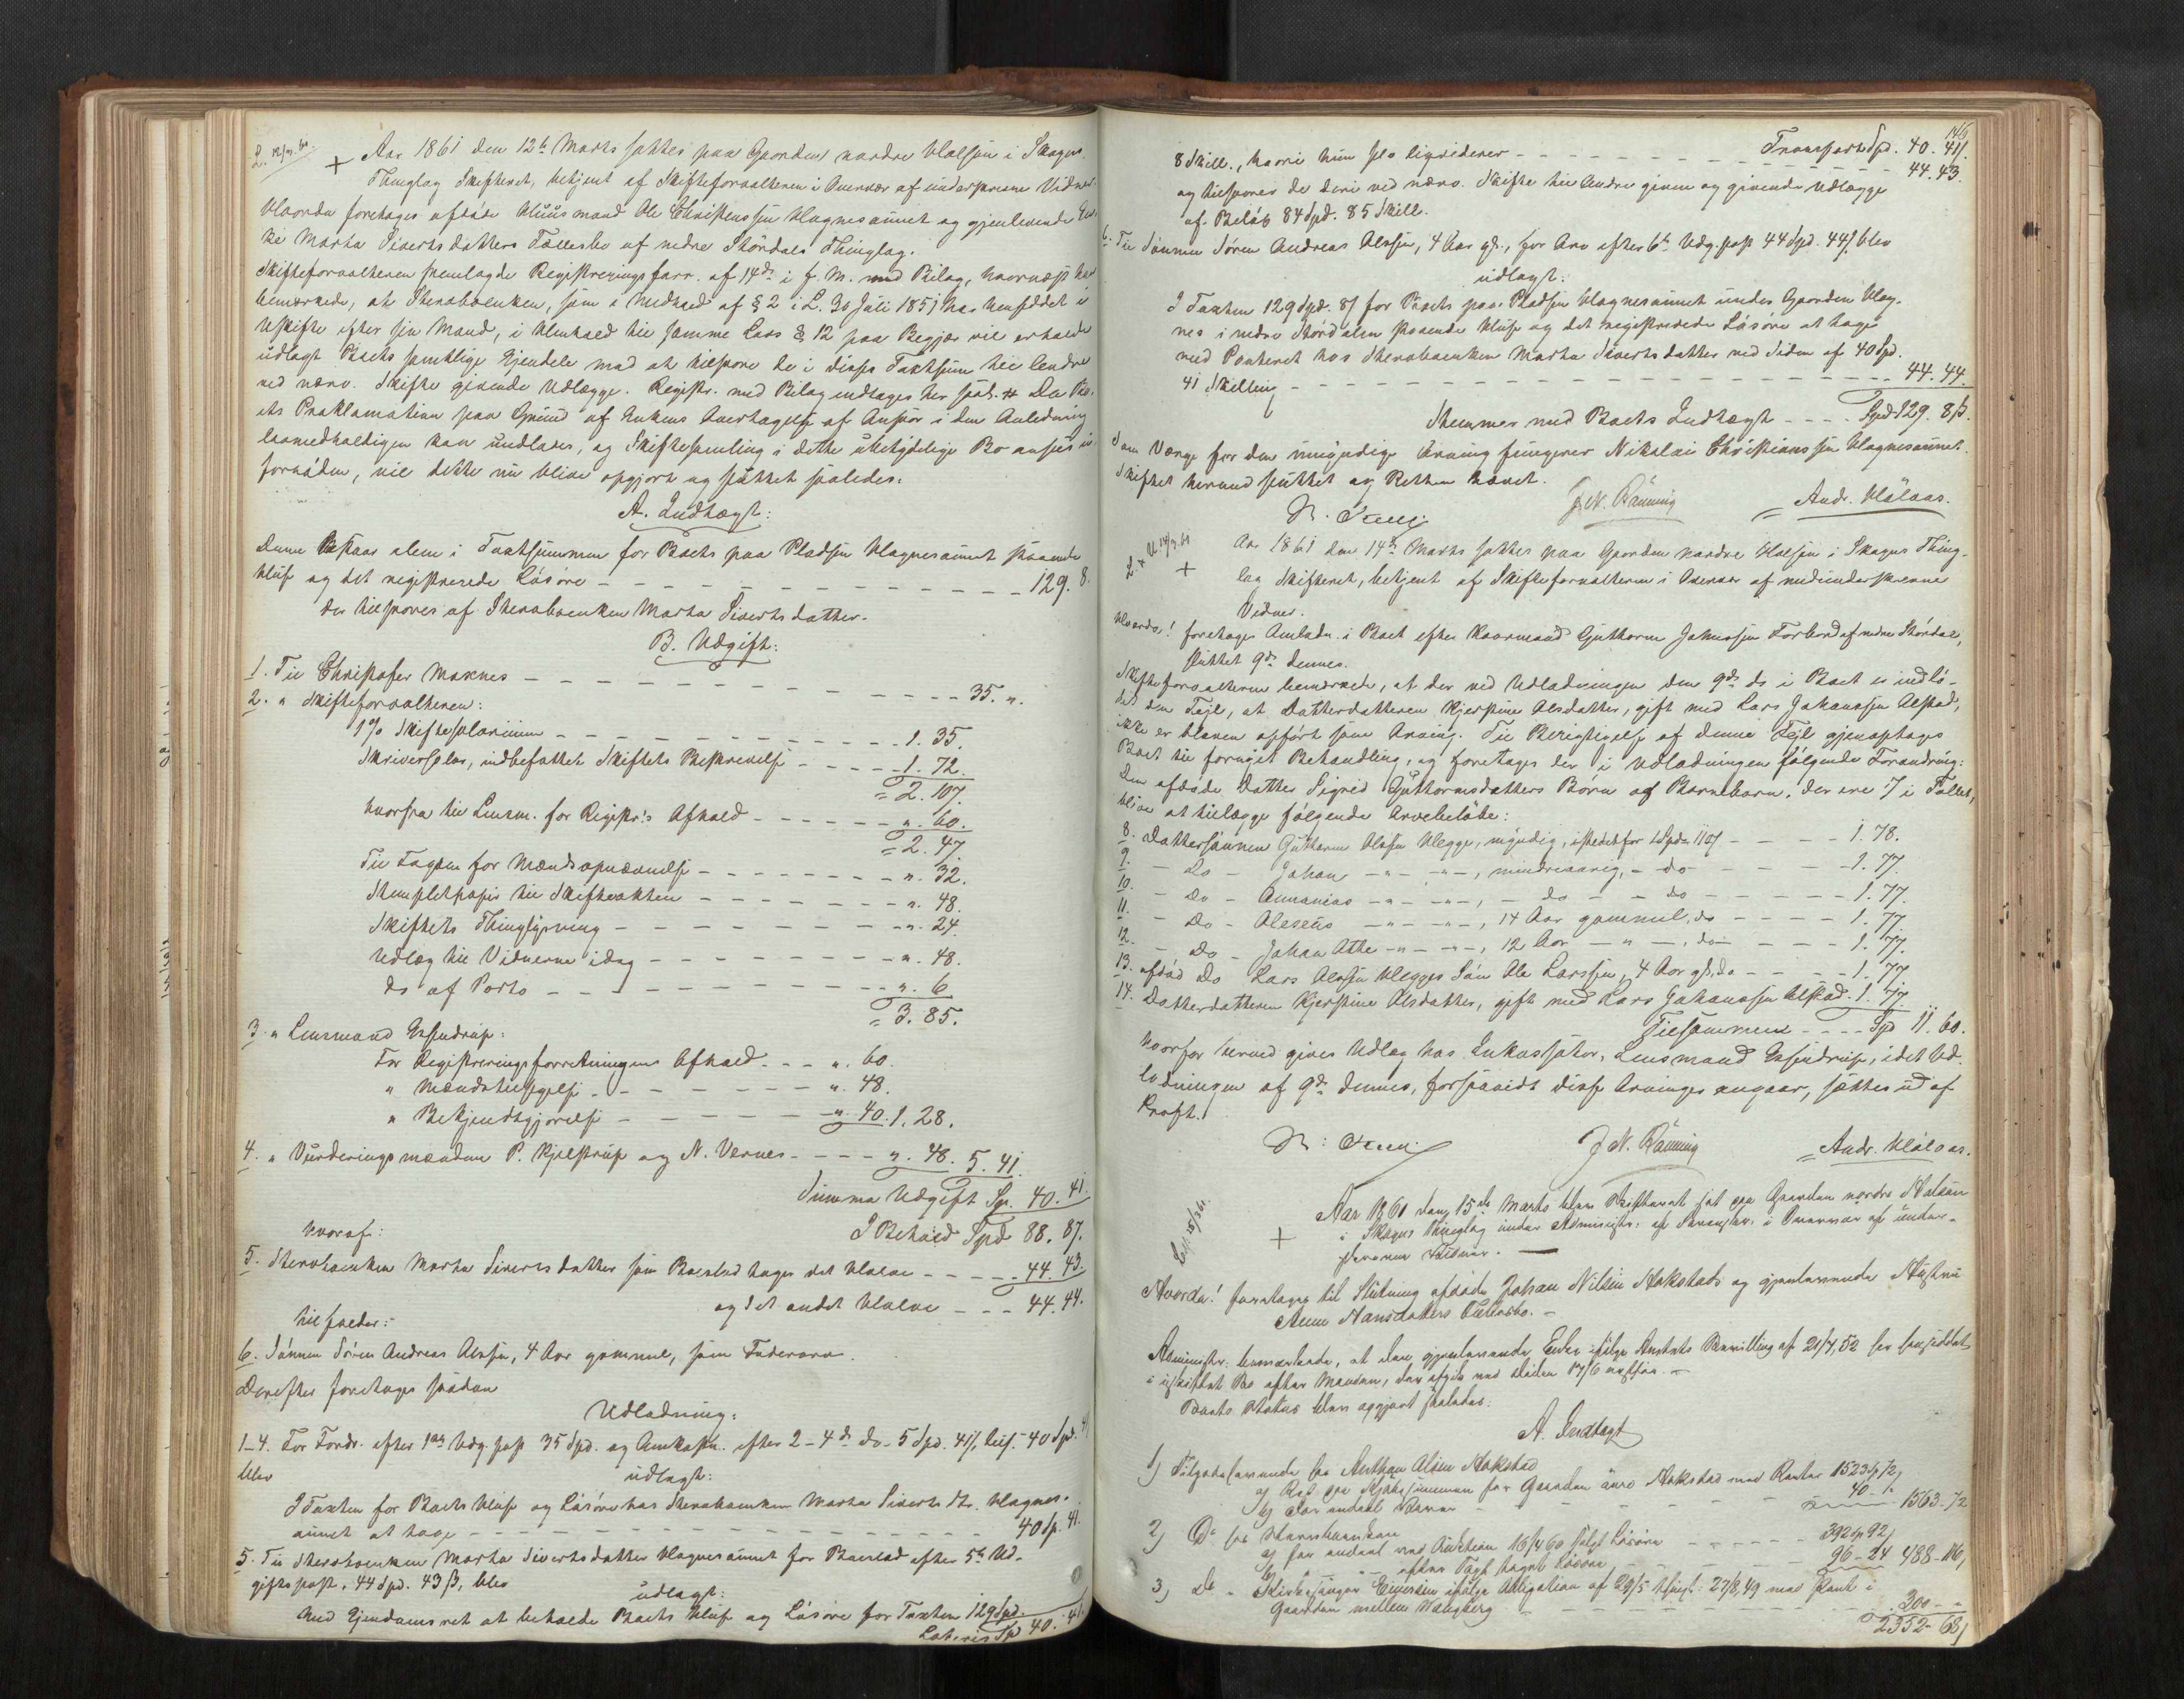 L. 12/3.61.
+ Aar 1861 den 12te Marts sattes paa Gaarden nordre Halsen i Skogns
Thinglag Skifteret, betjent af Skifteforvalteren i Overvær af underskrevne Vidner
Hvorda foretages afdøde Huusmand Ole Christenssen Hognesaunet og gjenlevende En-
ke Marta Sivertsdatters Fællesbo af nedre Stördals Thinglag.
Skifteforvalteren fremlagde Registreringsforr. af 14de i f. M. med Bilag, hvornæst han
bemærkede, at Stervboenken, som i Medhold af § 2 i L. 30 Juli 1851 har hensiddet i
Uskifte efter sin Mand, i Henhold til samme Lovs § 12 paa Begjær vil erholde
udlagt Boets samtlige Eiendele mod at tilsvare de i disses Taxtsum til Andre
ved nærv. Skifte givende Udlægge. Registr. med Bilag indtages her saal. # Da Bo-
ets Proklamation paa Grund af Enkens Overtagelse af Ansvar i den Anledning
lovmedholdigen kan undlades, og Skiftesamling i dette ubetydelige Bo ansees u-
fornöden, vil dette nu blive opgjort og sluttet saaledes:
A. Indtægt:
Denne bestaar alene i Taxtsummen for Boets paa Pladsen Hognesaunet staaende
Huse og det registrerede Lösöre - - - 129. 8.
der tilsvares af Stervboenken Marta Sivertsdatter.
B. Udgift:
1. Til Christofer Moxnes - - - 35. ".
2. " Skifteforvalteren:
1% Skiftesalarium - - - 1. 35.
Skriversalar, indbefattet Skiftets Beskrivelse - - - 1. 72.
= 2. 107.
hvorfra til Lensm. for Registr:s Afhold - - - ". 60.
= 2. 47.
Til Fogden for Mændsopnævnelse - - - ". 32.
Stempletpapir til Skifteakten - - - ". 48.
Skiftets Thinglysning - - - ". 24.
Udlæg til Vidnerne idag - - - ". 48.
do af Porto - - - ". 6
= 3. 85.
3. " Lensmand Essendrup:
For Registreringsforretningens Afhold - - - ". 60.
" Mændstilsigelse - - - ". 48.
" Bekjendtgjörelse - - - ". 40. 1. 28.
4. " Vurderingsmændene P. Kjelstrup og N. Vernes - - - ". 48. 5. 41.
Summa Udgift Sp. 40. 41.
hvoraf: I Behold Spd 88. 87.
5. Stervboenken Marta Sivertsdatter som Boeslod tager det Halve - - - 44. 43.
og det andet Halve - - - 44. 44.
tilfalder:
6. Sönnen Sören Andreas Olssen, 4 Aar gammel, som Faderarv.
Derefter foretages saadan
Udlodning:
1-4. For Fordr. efter 1ste Udg. post 35 Spd. og Omkostn. efter 2-4de do - 5 Spd. 41 ß, tils. 40 Spd. 41
blev udlagt:
I Taxten for Boets Huse og Lösöre hos Stervboenken Marta Sivertsdtr. Hognes-
aunet at tage - - - 40 Sp. 41.
5. Til Stervboenken Marta Sivertsdatter Hognesaunet for Boeslod efter 5te Ud-
giftspost. 44 Spd. 43 ß, blev udlagt:
Med Eiendomsret at beholde Boets Huse og Lösöre for Taxten 129 Spd.
Lateris Sp 40. 41.
146
Transport Spd. 40. 41.
8 Skill., hvori hun selv liqviderer - - - 44. 43.
og tilsvarer de deri ved nærv. Skifte til Andre given og givende Udlægge
af Belöb 84 Spd. 85 Skill.
6. Til Sönnen Sören Andreas Olssen, 4 Aar gl., for Arv efter 6te Udg. post 44 Spd. 44 ß blev
udlagt:
I Taxten 129 Spd. 8 ß for Boets paa Pladsen Hognesaunet under Gaarden Hog-
nes i nedre Stördalen staaende Huse og det registrerede Lösöre at tage
med Panteret hos Stervboenken Marta Sivertsdatter ved Siden af 40 Spd.
41 Skilling - - - 44. 44.
Stemmer med Boets Indtægt - - - Spd 129. 8 ß.
Som Værge for den umyndige Arving fungerer Nikolai Christianssen Hognesaunet.
Skiftet hermed sluttet og Retten hævet.
J. N. Rönning Andr. Hölaas.
L. & U. 14/3.61
+ Aar 1861 den 14de Marts sattes paa Gaarden nordre Halsen i Skogns Thing-
lag Skifteret, betjent af Skifteforvalteren i Overvær af nedunderskrevne
Vidner.
Hvorda! foretages Omlodn. i Boet efter Kaarmand Guttorm Jakobssen Forbord af nedre Stördal,
sluttet 9de dennes.
Skifteforvalteren bemærkede, at der ved Udlodningen den 9de ds i Boet er indlö-
bet den Feil, at Datterdatteren Kjerstine Olsdatter, gift med Lars Johanssen Alstad,
ikke er bleven opfört som Arving. Til Berigtigelse af denne Feil gjenoptages
Boet til fornyet Behandling, og foretages der i Udlodningen fölgende Forandring:
Den afdöde Datter Sigrid Guttormsdatters Börn og Barnebarn, der ere 7 i Tallet,
blive at tillægge fölgende Arvebelöbe:
8. Dattersönnen Guttorm Olssen Hegge, myndig, istedetfor 1 Spd. 110 ß - - - 1. 78.
9. - Do - Johan - " - " -, mindreaarig, - do - - - 1. 77.
10. - Do - Annanias - " - " -, - do - - do - - - 1. 77.
11. - Do - Olesius - " - " -, 14 Aar gammel, do - - - 1. 77.
12. - Do - Johan Atle - " - " -, 12 Aar - " -, do - - - 1. 77.
13. afdöd Do Lars Olssen Hegges Sön Ole Larssen, 4 Aar gl, do - - - 1. 77.
14. Datterdatteren Kjerstine Olsdatter, gift med Lars Johanssen Alstad. 1. 77.
Tilsammen - - - Spd 11. 60.
hvorfor herved gives Udlæg hos Inkassator, Lensmand Essendrup, idet Ud-
lodningen af 9de dennes, forsaavidt disse Arvinger angaar, sættes ud af
Kraft.
J. N. Rönning Andr. Hölaas.
15/3 61.
+ Aar 1861 den 15de Marts blev Skifteret sat paa Gaarden nordre Halsen
i Skogns Thinglag under Administr: af Sorenskr. i Overvær af under-
skrevne Vidner. —
Hvorda! foretages til Slutning afdøde Johan Nilsen Hokstads og gjenlevende Hustru
Anne Hansdatters Fællesbo. —
Administr: bemærkede, at den gjenlevende Enke ifölge Amtets Bevilling af 21/4, 52 har hensiddet
i uskiftet Bo efter Manden, der afgik ved Döden 17/6 næstfør. —
Boets Status blev opgjort saaledes:
A. Indtægt
1) Tilgodehavende hos Anthon Olsen Hokstad
a) Rest paa Kjöbesummen for Gaarden övre Hokstad med Renter 1523 sp 72
b) For andet Varer - - - 40 - " - 1563 - 72
2) Do hos Stervboenken
a) for andel ved Auktion 16/4 60 solgt Lösöre - - - 392 sp 92
b) " " efter Taxt taget Lösöre - - - 96 - 24 488 - 116
3) Do - Kirkesanger Einersen ifölge Obligation af 29/5 thinglæst: 27/8, 49 med Pant i
Gaarden mellem - - - 300 - "
2352 - 68